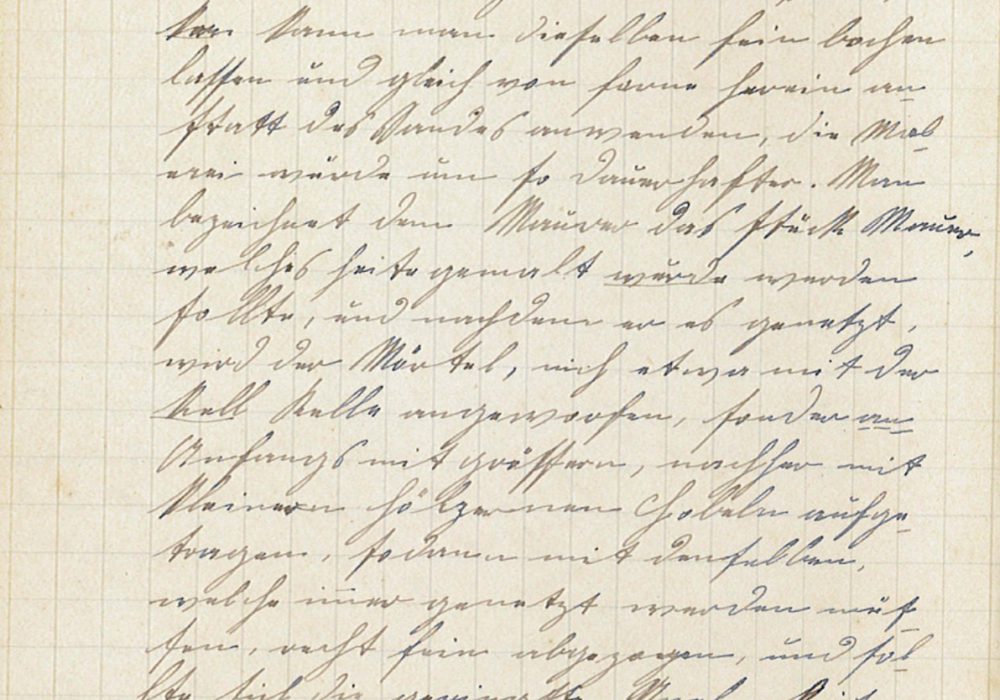 kan kann man dieselben fein bochen
lassen und gleich von forne herein an
statt des Sandes anwenden, die Mal
erei würde um so dauerhafter. Man
bezeichnet dem Maurer das stück Mauer,
welches heite gemalt wurde werden
sollte, und nachdem er es genetzt,
wird der Mörtel, nich etwa mit der
Kell Kelle angeworfen, sonder an
Anfangs mit grössern, nachher mit
kleinern hölzernen Hobeln aufge
tragen, sodann mit denselben,
welche imer genetzt werden müs
sen, recht fein abgezogen, und sol
lte sich die